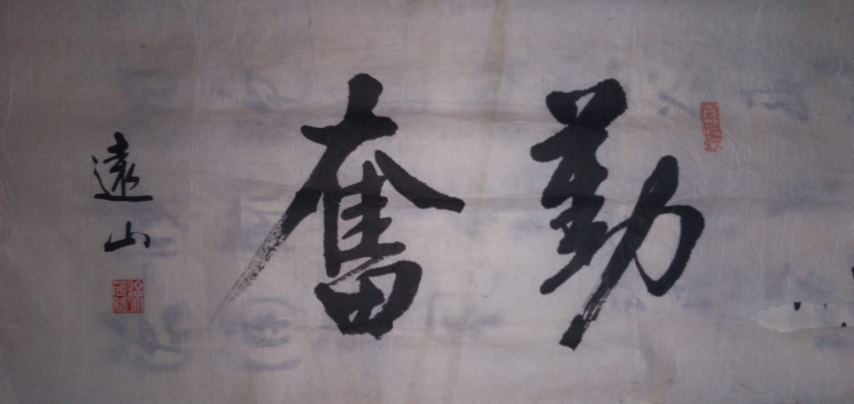 勤奮
遠山